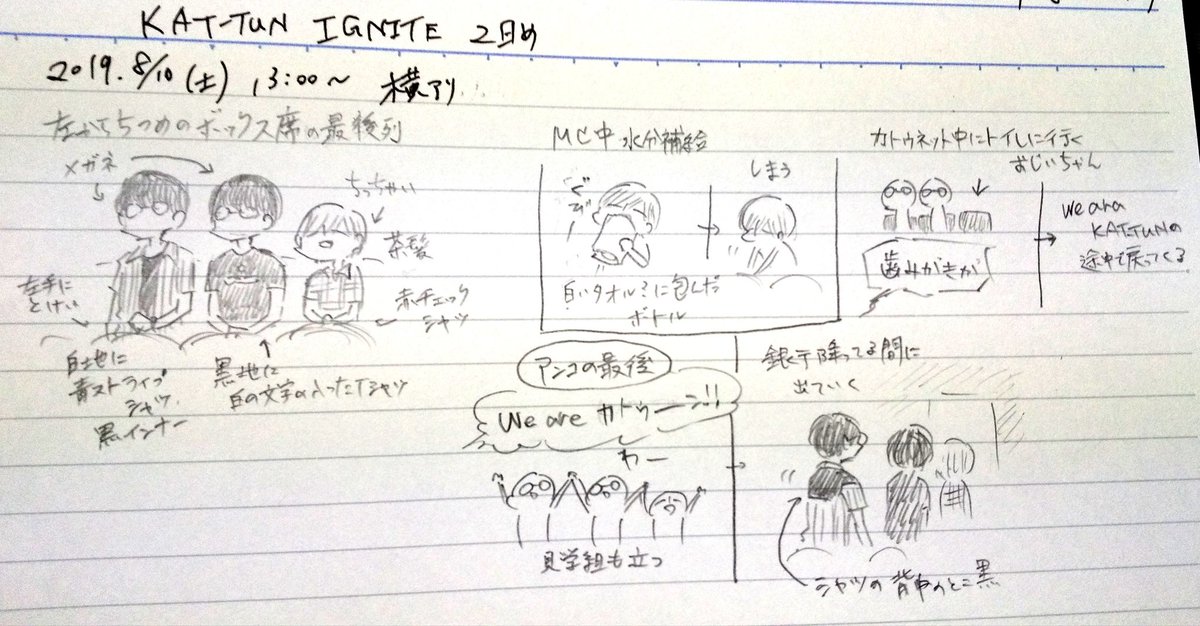 KAT-TUN IGNITE 2日め
2019.8/10(土) 13:00〜 横アリ
左から5つめのボックス席の最後列
メガネ
ちっちゃい
茶髪
左手に
とけい
赤チェック
シャツ
白地に
青ストライプ
シャツ
黒インナー
黒地に
白の文字の入ったTシャツ
MC中 水分補給
ぐびー
しまう
白いタオル?に包んだ
ボトル
カトゥネット中にトイレに行く
おじいちゃん
歯みがきか
we are
KAT-TUNの
途中で戻ってくる
アンコの最後
We are カトゥーン!!
わー
見学組も立つ
銀テ降ってる間に
出ていく
シャツの背中のとこ黒